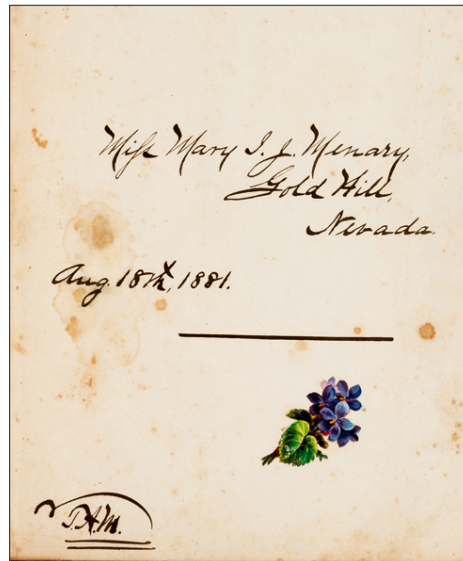 Miss Mary I. J. Menary,
Gold Hill,
Nevada.
Aug. 18th, 1881.
T.H.M.